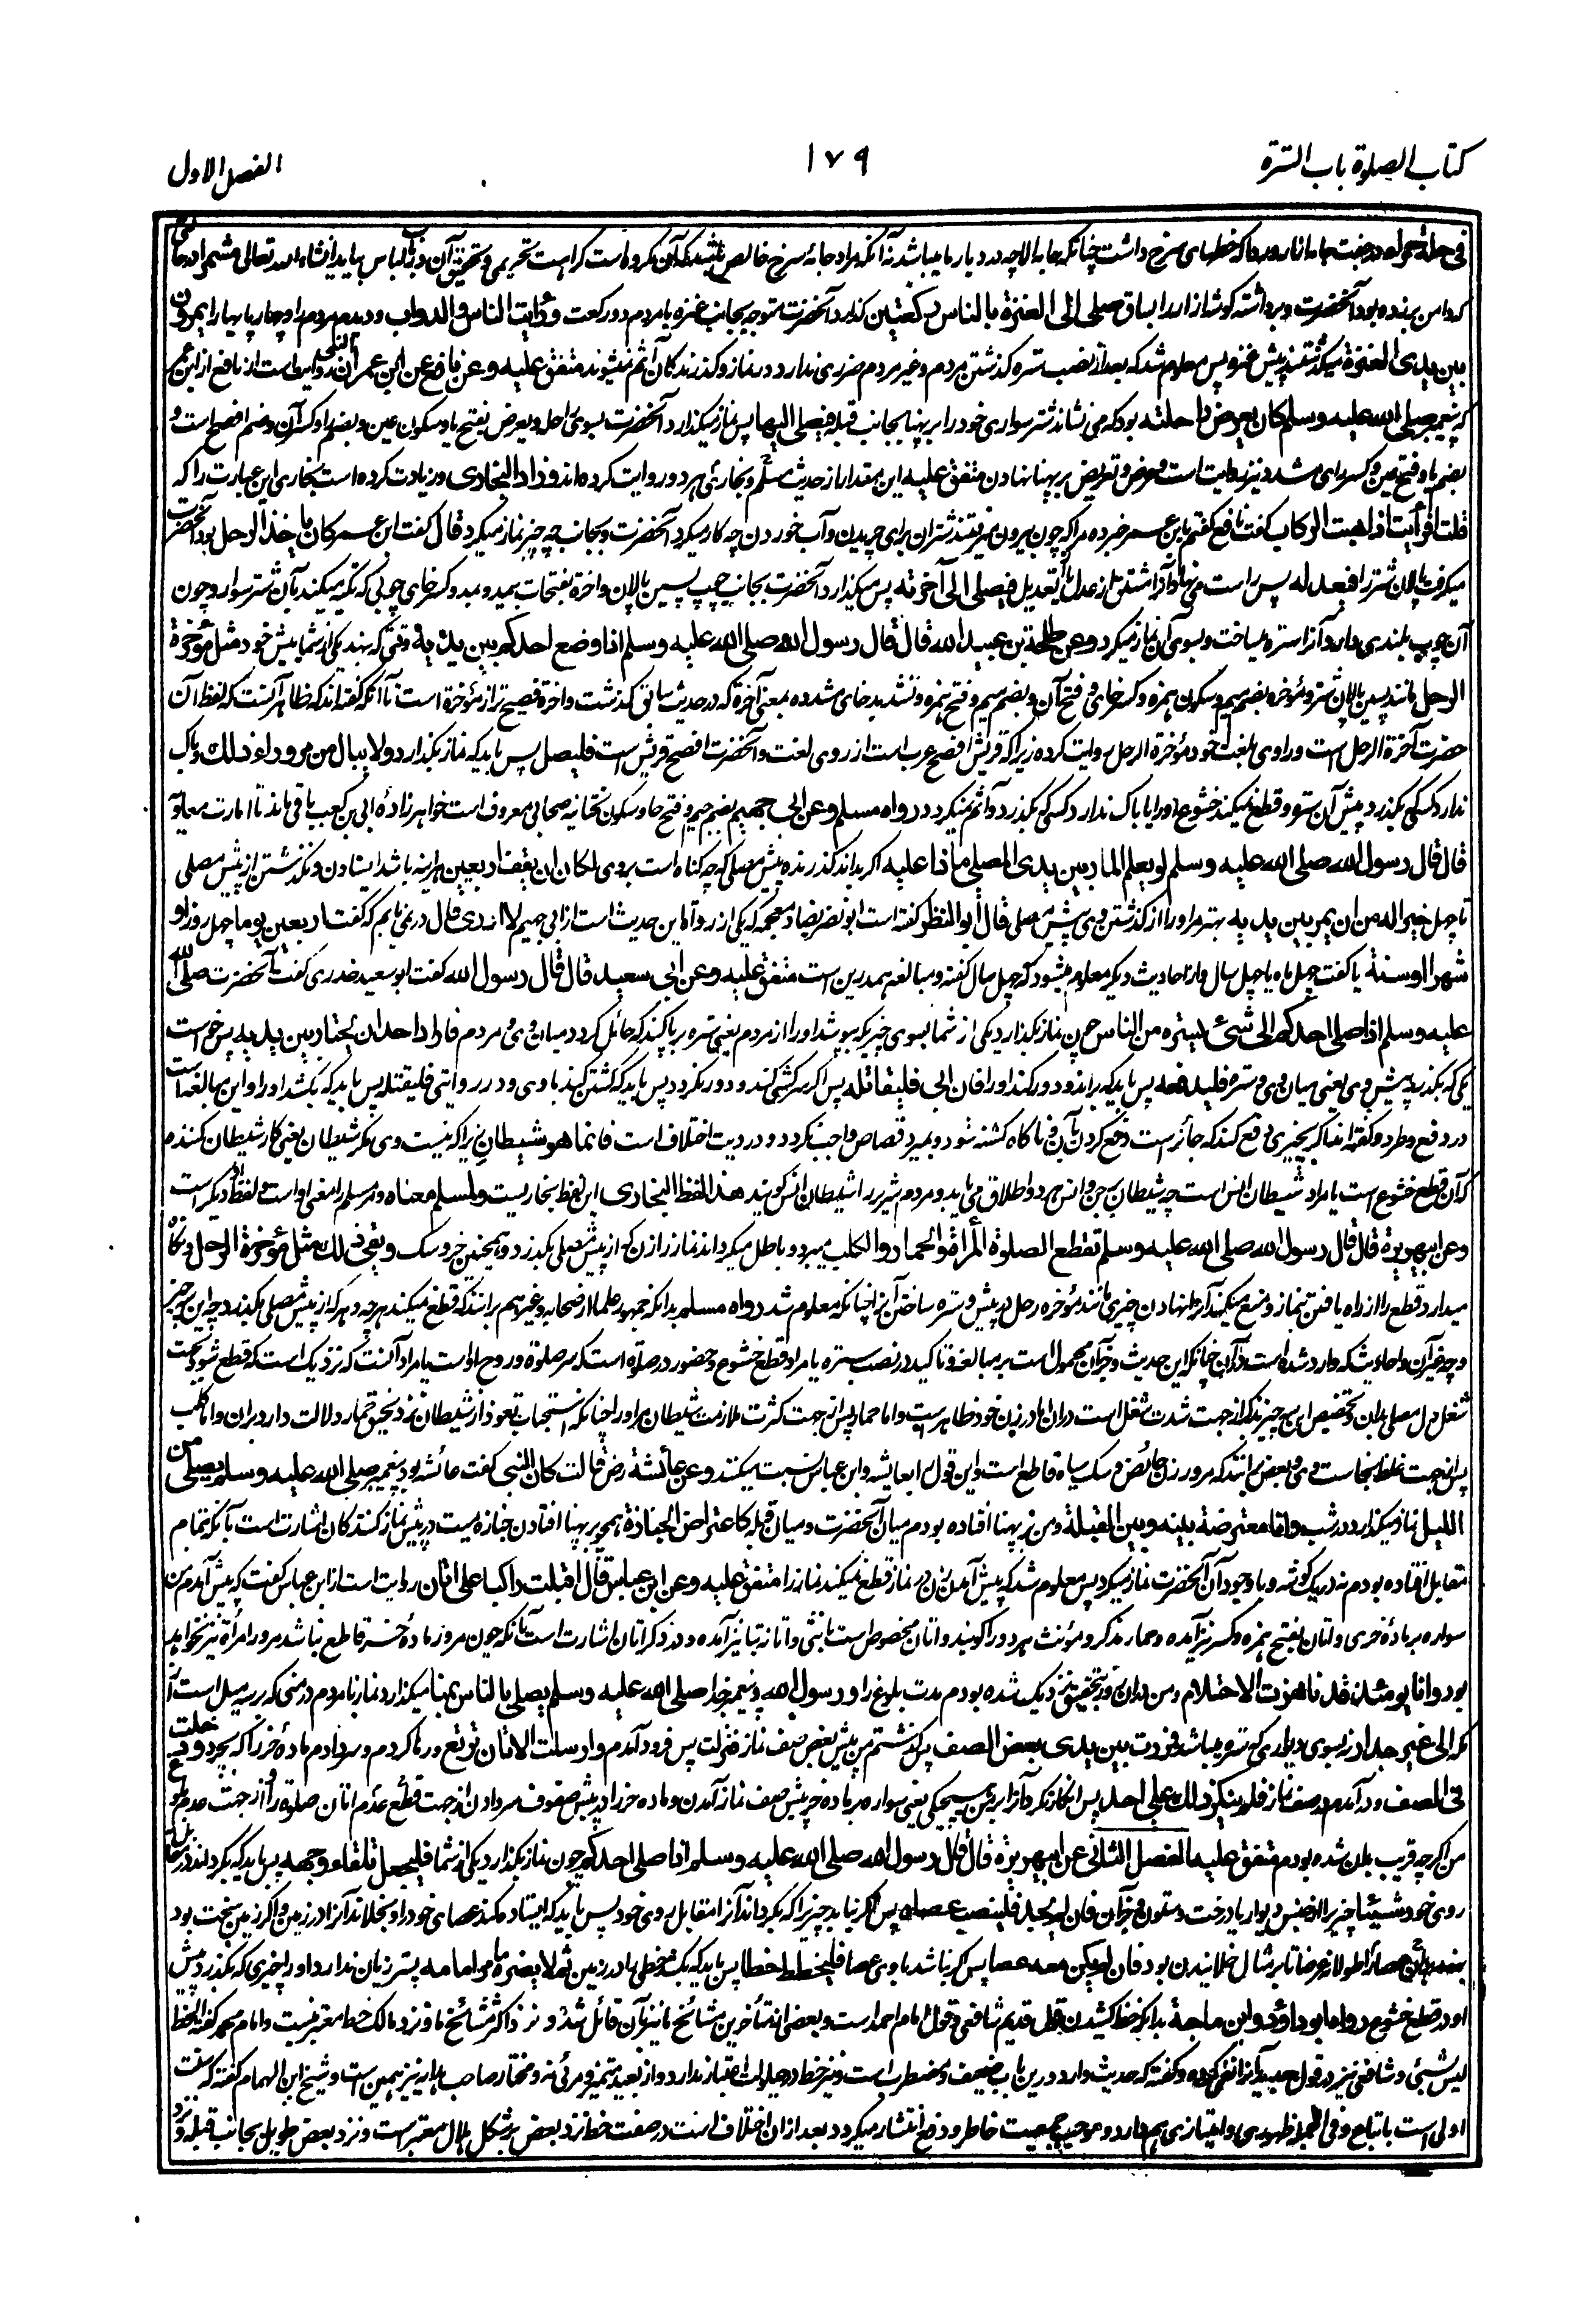 كتاب الصلوة باب السترة
١٧٩
الفصل الاول
فى حلة حمراء در جفت جامه ازار و ردا كه خطهاى سرخ داشت چنانكه جامه الاچه در ديار ما ميباشد نه آنكه مراد جامهٔ سرخ خالص باشد كه آن مكروه است كراهت تحريمى و تحقيق آن در كتاب لباس بيايد انشاء الله تعالى مشمرا در حالتى
كه دامن برزده بود آنحضرت و برداشته گوشهٔ ازار را بساق صلى الى العنزة بالناس ركعتين گذارد آنحضرت متوجه بجانب عنزه با مردم دو ركعت و رأيت الناس والدواب و ديدم مردم را و چارپايها را يمرون
بين يدى العنزة ميگذشتند پيش عنزه پس معلوم شد كه بعد از نصب ستره گذشتن مردم و غير مردم ضررى ندارد در نماز و گذرندگان آثم نميشوند متفق عليه و عن نافع عن ابن عمر ان النبى روايت است از نافع از ابن عمر
كه پيغمبر صلى الله عليه وسلم كان يعرض راحلته بود كه مى نشاند شتر سوارى خود را بر پهنا بجانب قبله فيصلى اليها پس نماز ميگذارد آنحضرت بسوى راحله و يعرض بفتح يا و سكون عين و بضم را و كسر آن و ضم افصح است و
بضم يا و فتح عين و كسر راى مشدد نيز روايت است و عرض و تعريض بر پهنا نهادن متفق عليه اين مقدار از حديث مسلم و بخارى هر دو روايت كرده اند و زاد البخارى و زيادت كرده است بخارى اين عبارت را كه
قلت افرأيت اذا هبت الركاب گفت نافع گفتم بابن عمر خبر ده مرا كه چون بيرون ميرفتند شتران براى چريدن و آب خوردن چه كار ميكرد آنحضرت و بجانب چه چيز نماز ميكرد قال گفت ابن عمر كان ياخذ الرحل بود آنحضرت
ميگرفت پالان شتر را فيعدله پس راست مى نهاد آنرا فيصلى الى آخرته پس ميگذارد آنحضرت بجانب چوب پسين پالان و اخرة بفتحات بميد و بمد و كسر خاى چوبى كه تكيه ميكند بآن شتر سوار و چون
آن چوب بلندى دارد آنرا ستره ميساخت و بسوى آن نماز ميكرد و عن طلحة بن عبيد الله قال قال رسول الله صلى الله عليه وسلم اذا وضع احدكم بين يديه وقتى كه بنهد يكى از شما پيش خود مثل مؤخرة
الرحل مانند پسين پالان شتر و مؤخره بضم ميم و سكون همزه و كسر خاى و فتح آن و بضم ميم و فتح همزه و تشديد خاى مشدده بمعنى آخرة كه در حديث سابق گذشت و اخرة فصيح تر از مؤخرة است تا آنكه گفته اند كه ظاهر آنست كه لفظ آن
حضرت آخرة الرحل است و راوى بلغت خود مؤخرة الرحل روايت كرده زيرا كه قريش افصح عرب است از روى لغت و آنحضرت افصح قريش است فليصل پس بايد كه نماز بگذارد ولا يبال من مر وراء ذلك و باك
ندارد كسى كه بگذرد پيش آن ستره و قطع نميكند خشوع او را يا باك ندارد كسى كه بگذرد و آثم نميگردد رواه مسلم و عن ابى جهيم بضم جيم و فتح ها و سكون تحتانيه صحابى معروف است خواهرزادهٔ ابى بن كعب باقى ماند تا امارت معاويه
قال قال رسول الله صلى الله عليه وسلم لو يعلم المار بين يدى المصلى ماذا عليه اگر بداند گذرنده پيش مصلى كه چه گناه است بروى لكان ان يقف اربعين هر اينه باشد ايستادن و نگذشتن از پيش مصلى
تا چهل خيرا له من ان يمر بين يديه بهتر مر او را از گذشتن وى پيش مصلى قال ابو النضر گفته است ابو نضر بضاد معجمه كه يكى از روات اين حديث است از ابى جهيم لا ادرى قال در نمى يابم كه گفت اربعين يوما چهل روز او
شهرا او سنة يا گفت چهل ماه يا چهل سال و از احاديث ديگر معلوم ميشود كه چهل سال گفته و مبالغه هم درين است متفق عليه و عن ابى سعيد قال قال رسول الله گفت ابو سعيد خدرى گفت آنحضرت صلى الله
عليه وسلم اذا صلى احدكم الى شىء يستره من الناس چون نماز بگذارد يكى از شما بسوى چيزيكه بپوشد او را از مردم يعنى ستره برپا كند كه حائل گردد ميان وى و مردم فاراد احد ان يجتاز بين يديه پس خواست
يكى كه بگذرد پيش وى يعنى ميان وى و ستره فليدفعه پس بايد كه براند و دور كند او را فان ابى فليقاتله پس اگر سركشى كند و دور نگردد پس بايد كه كشتن كند با وى و در روايتى فليقتله پس بايد كه بكشد او را و اين مبالغه است
در دفع و طرد و گفته اند اگر بچيزى دفع كند كه جائز است دفع كردن بآن و ناگاه كشته شود و بميرد قصاص واجب نگردد و در ديت اختلاف است فانما هو شيطان زيرا كه نيست وى مگر شيطان يعنى كار شيطان كننده
كه آن قطع خشوع است يا مراد شيطان انس است چه شيطان بر جن و انس هر دو اطلاق مى يابد و مردم شرير را شيطان انس گويند هذا لفظ البخارى اين لفظ بخاريست ولمسلم معناه و مر مسلم را معنى او است و لفظ او ديگر است
و عن ابى هريرة قال قال رسول الله صلى الله عليه وسلم تقطع الصلوة المرأة والحمار والكلب ميبرد و باطل ميگرداند نماز را زن كه از پيش مصلى بگذرد و همچنين خر و سگ ويقى ذلك مثل مؤخرة الرحل و نگاه
ميدارد قطع را از راه يافتن بنماز و منع ميكند آنرا نهادن چيزى مانند مؤخره رحل در پيش و ستره ساختن آنرا چنانكه معلوم شد رواه مسلم بدانكه جمهور علما از صحابه و غيرهم برانند كه قطع نميكند هر چه و هر كه از پيش مصلى بگذرد چه اين سه چيز
و چه غير آن و احاديث كه وارد شده است در آن چنانكه اين حديث و جز آن محمول است بر مبالغه و تاكيد در نصب ستره يا مراد قطع خشوع و حضور در صلوة است كه سر صلوة و روح او است يا مراد آنست كه نزديك است كه قطع شود بجهت
شغل دل مصلى بدان و تخصيص اين سه چيز بذكر از جهت شدت شغل است در آن اما در زن خود ظاهر است و اما حمار پس از جهت كثرت ملازمت شيطان مر او را چنانكه استحباب تعوذ از شيطان نزد نهيق حمار دلالت دارد بران و اما كلب
پس از جهت غلظ نجاست وى و بعضى برانند كه مرور زن حائض و سگ سياه قاطع است و اين قول را بعايشه و ابن عباس نسبت ميكنند و عن عائشة رض قالت كان النبى گفت عائشه بود پيغمبر صلى الله عليه وسلم يصلى من
الليل نماز ميگذارد در شب وانا معترضة بينه وبين القبلة و من بر پهنا افتاده بودم ميان آنحضرت و ميان قبله كاعتراض الجنازة همچو بر پهنا افتادن جنازه ميت در پيش نماز كنندگان اشارت است بآنكه تمام
مقابل افتاده بودم نه در يك گوشه و با وجود آن آنحضرت نماز ميكرد پس معلوم شد كه پيش آمدن زن در نماز قطع نميكند نماز را متفق عليه و عن ابن عباس قال اقبلت راكبا على اتان روايت است از ابن عباس گفت كه پيش آمدم من
سواره بر مادهٔ خرى و اتان بفتح همزه و كسر نيز آمده و حمار مذكر و مؤنث هر دو را گويند و اتان مخصوص است بانثى و اتانه بتا نيز آمده و در ذكر اتان اشارت است بآنكه چون مرور مادهٔ خر قاطع نباشد مرور امرأة نيز نخواهد
بود وانا يومئذ قد ناهزت الاحتلام و من دران روز بتحقيق نزديك شده بودم مدت بلوغ را و رسول الله و پيغمبر خدا صلى الله عليه وسلم يصلى بالناس بمنا ميگذارد نماز با مردم در منى كه بر سه ميل است از
مكه الى غير جدار نه بسوى ديوارى كه ستره ميباشد فمررت بين يدى بعض الصف پس گذشتم من پيش بعض صف نماز فنزلت پس فرود آمدم وارسلت الاتان ترتع و رها كردم و سر دادم مادهٔ خر را كه بچرد ودخلت
فى الصف و در آمدم در صف نماز فلم ينكر ذلك على احد پس انكار نكرد آنرا بر من هيچ يكى يعنى سواره بر ماده خر پيش صف نماز آمدن و ماده خر را در پيش صفوف سر دادن از جهت عدم قطع اتان صلوة را و از جهت عدم بلوغ
من اگرچه قريب بآن شده بودم متفق عليه الفصل الثانى عن ابى هريرة قال قال رسول الله صلى الله عليه وسلم اذا صلى احدكم چون نماز بگذارد يكى از شما فليجعل تلقاء وجهه پس بايد كه بگرداند در مقابل
روى خود شيئا چيزيرا از جنس ديوار يا درخت و ستون و جز آن فان لم يجد فلينصب عصاه پس اگر نيابد چيزيرا كه بگرداند آنرا مقابل روى خود پس بايد كه ايستاده كند عصاى خود را و بخلاند آنرا در زمين و اگر زمين سخت بود
بنهد آن عصا را طولا نه عرضا تا بر مثال خلانيدن بود فان لم يكن معه عصا پس اگر نباشد با وى عصا فليخطط خطا پس بايد كه بكشد خطى را در زمين ثم لا يضره ما مر امامه پستر زيان ندارد او را چيزى كه بگذرد پيش
او در قطع خشوع رواه ابو داؤد وابن ماجة بدانكه خط كشيدن قول قديم شافعى و قول امام احمد است و بعضى از متأخرين مشائخ ما نيز بآن قائل شده و نزد اكثر مشائخ ما و نزد مالك خط معتبر نيست و امام محمد گفته الخط
ليس بشىء و شافعى نيز در قول جديد آنرا نفى كرده و گفته كه حديث وارد درين باب ضعيف و مضطرب است و نيز خط در حيلولت اعتبار ندارد و از بعيد متميز و مرئى نه و مختار صاحب هدايه نيز همين است و شيخ ابن الهمام گفته كه سنت
اولى است باتباع و فى الجمله ظهورى و امتيازى هم دارد و موجب جمعيت خاطر و دفع انتشار ميگردد بعد ازان اختلاف است در صفت خط نزد بعض بر شكل هلال معتبرست و نزد بعض طويل بجانب قبله و نزد